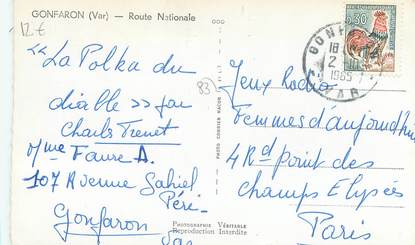 GONFARON (Var) — Route Nationale
12 €
« La Polka du
diable » par
Charles Trenet
Mme Faure A.
107 Avenue Gabriel
Péri
Gonfaron
Var
83
PHOTO COURRIER RACON
PHOTOGRAPHIE VÉRITABLE
Reproduction Interdite
0,30
GONF
18
2
1965
VAR
Jeux Radio
Femmes d'aujourd'hui
4 Rd point des
Champs Elysées
Paris